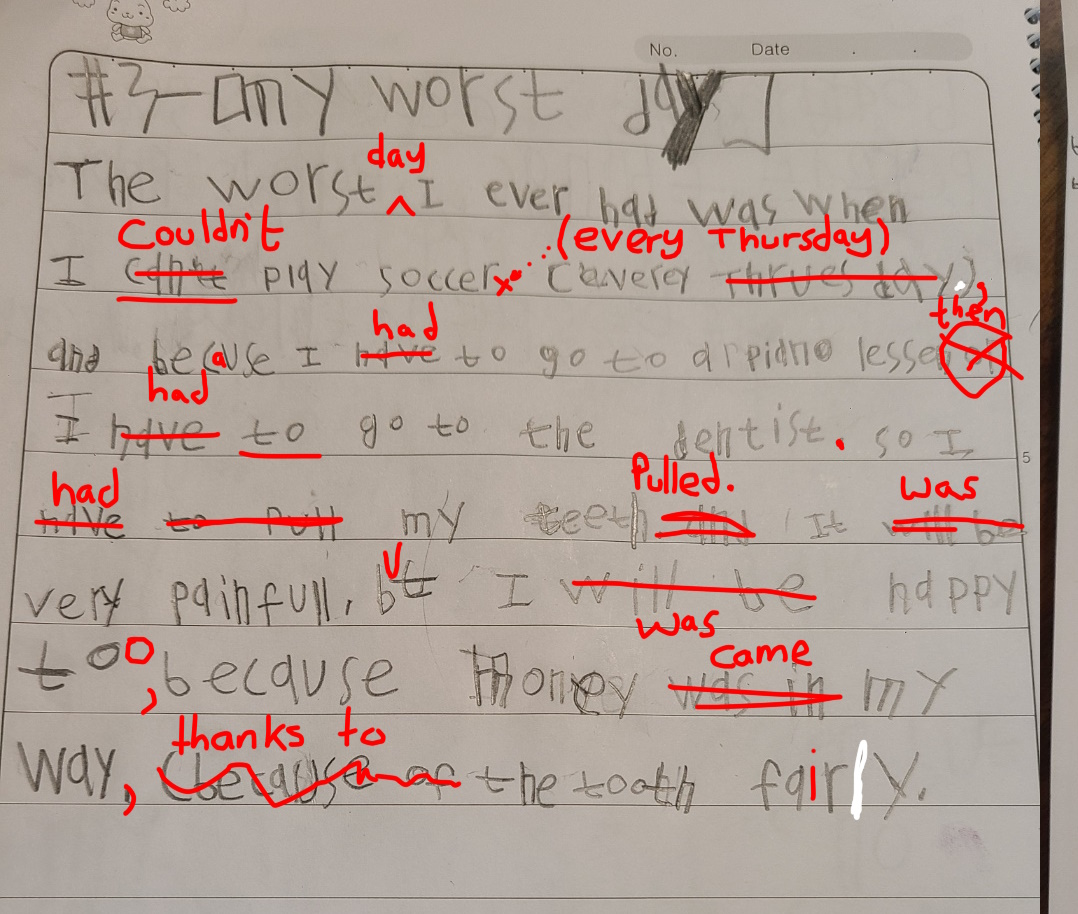 No. Date
#3-[my worst day]
day
The worst ^ I ever had was when
Couldn't (every Thursday)
I can't play soccer (everey Thrues day),
had then
and because I have to go to a piano lesse
had
I have to go to the dentist. so I
5
had Pulled. was
have to pull my teeth and It will be
very painfull, but I will be happy
was
came
too, because money was in my
thanks to
way, (because of the tooth fairy.